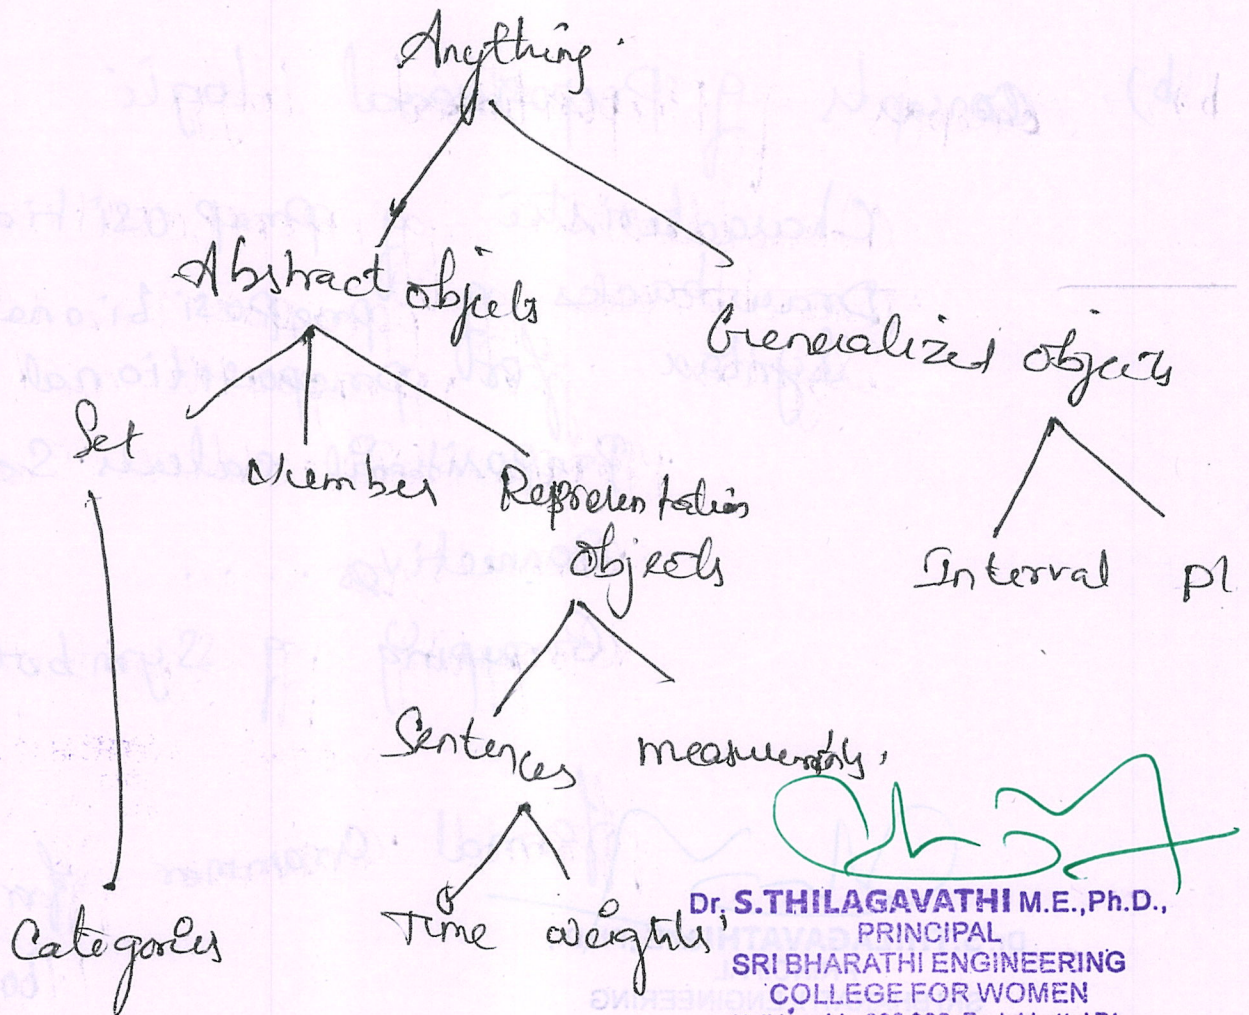 Anything
Abstract objects
Generalized objects
Set
Number
Representation
objects
Interval
Pl
Sentences
measurements.
Time
weights
Categories
Dr. S.THILAGAVATHI M.E.,Ph.D.,
PRINCIPAL
SRI BHARATHI ENGINEERING
COLLEGE FOR WOMEN